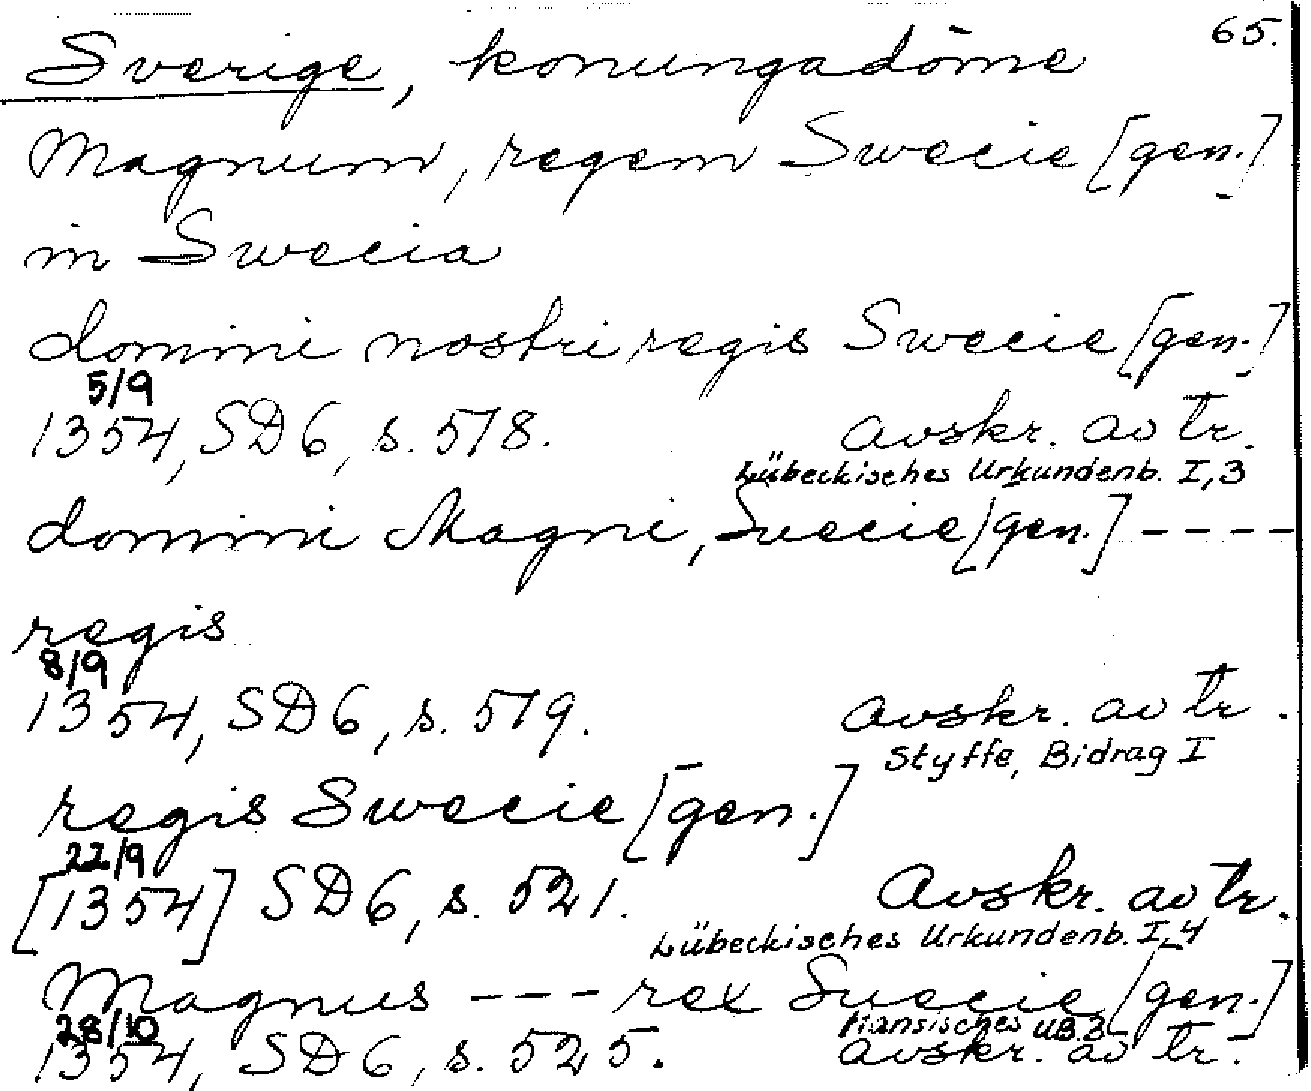 65.
Sverige, konungadöme
Magnum, regem Swecie [gen.]
in Swecia
domini nostri regis Swecie [gen.]
5/9
1354, SD 6, s. 518. Avskr. av tr.
Lübeckisches Urkundenb. I, 3
domini Magni, Suecie [gen.] ----
regis
8/9
1354, SD 6, s. 519. Avskr. av tr.
Styffe, Bidrag I
regis Swecie [gen.]
22/9
[1354] SD 6, s. 521. Avskr. av tr.
Lübeckisches Urkundenb. I, 4
Magnus --- rex Suecie [gen.]
28/10 Hansisches UB 3
1354, SD 6, s. 525. avskr. av tr.